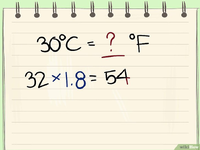 30°C = ? °F
32 ×1.8 = 54